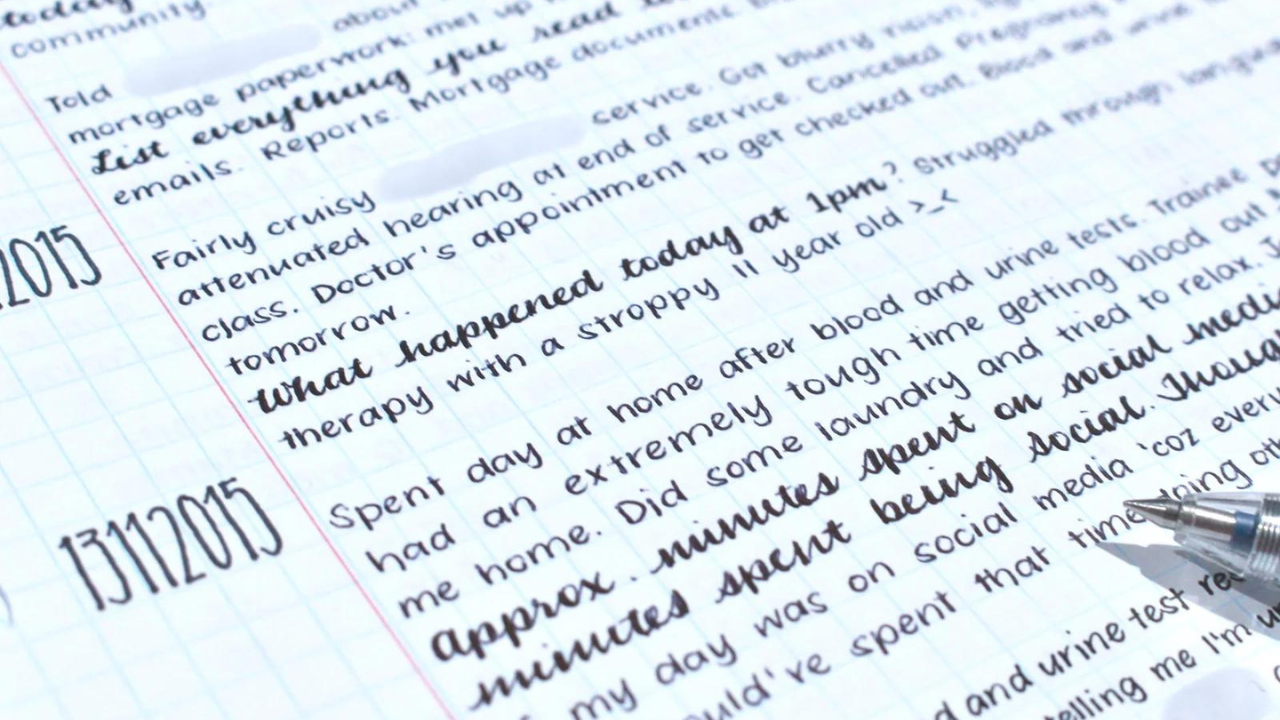 today
community.
Told about
mortgage paperwork: met up
List everything you read
emails. Reports. Mortgage documents.
Fairly cruisy service. Got blurry vision,
attenuated hearing at end of service. Cancelled Pregnancy
class. Doctor's appointment to get checked out. Blood and urine
tomorrow.
What happened today at 1pm? Struggled through
therapy with a stroppy 11 year old >_<
2015
13112015
Spent day at home after blood and urine tests. Trainee
had an extremely tough time getting blood out
me home. Did some laundry and tried to relax.
Approx. minutes spent on social
minutes spent being social.
my day was on social media 'coz
spent that time doing
and urine test
telling me I'm